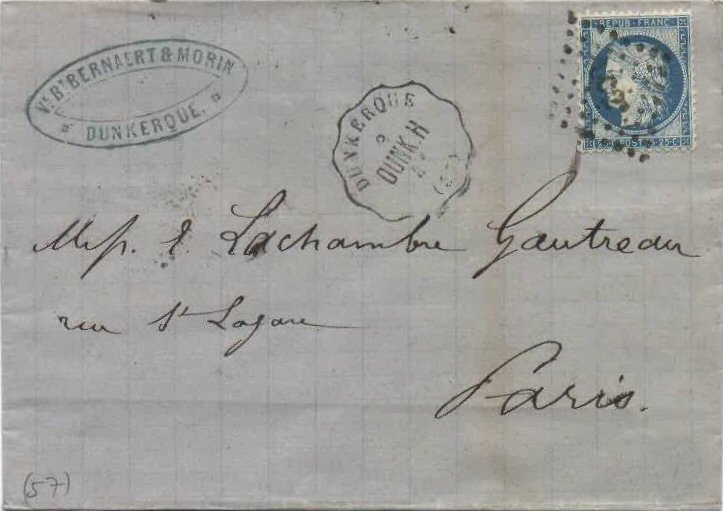 Ve Bt BERNAERT & MORIN
DUNKERQUE.
DUNKERQUE
DUNK.H
(57)
REPUB·FRANC·
25 C POSTE 25 C
Lachambre Gautreau
rue St Lazare
Paris.
(57)